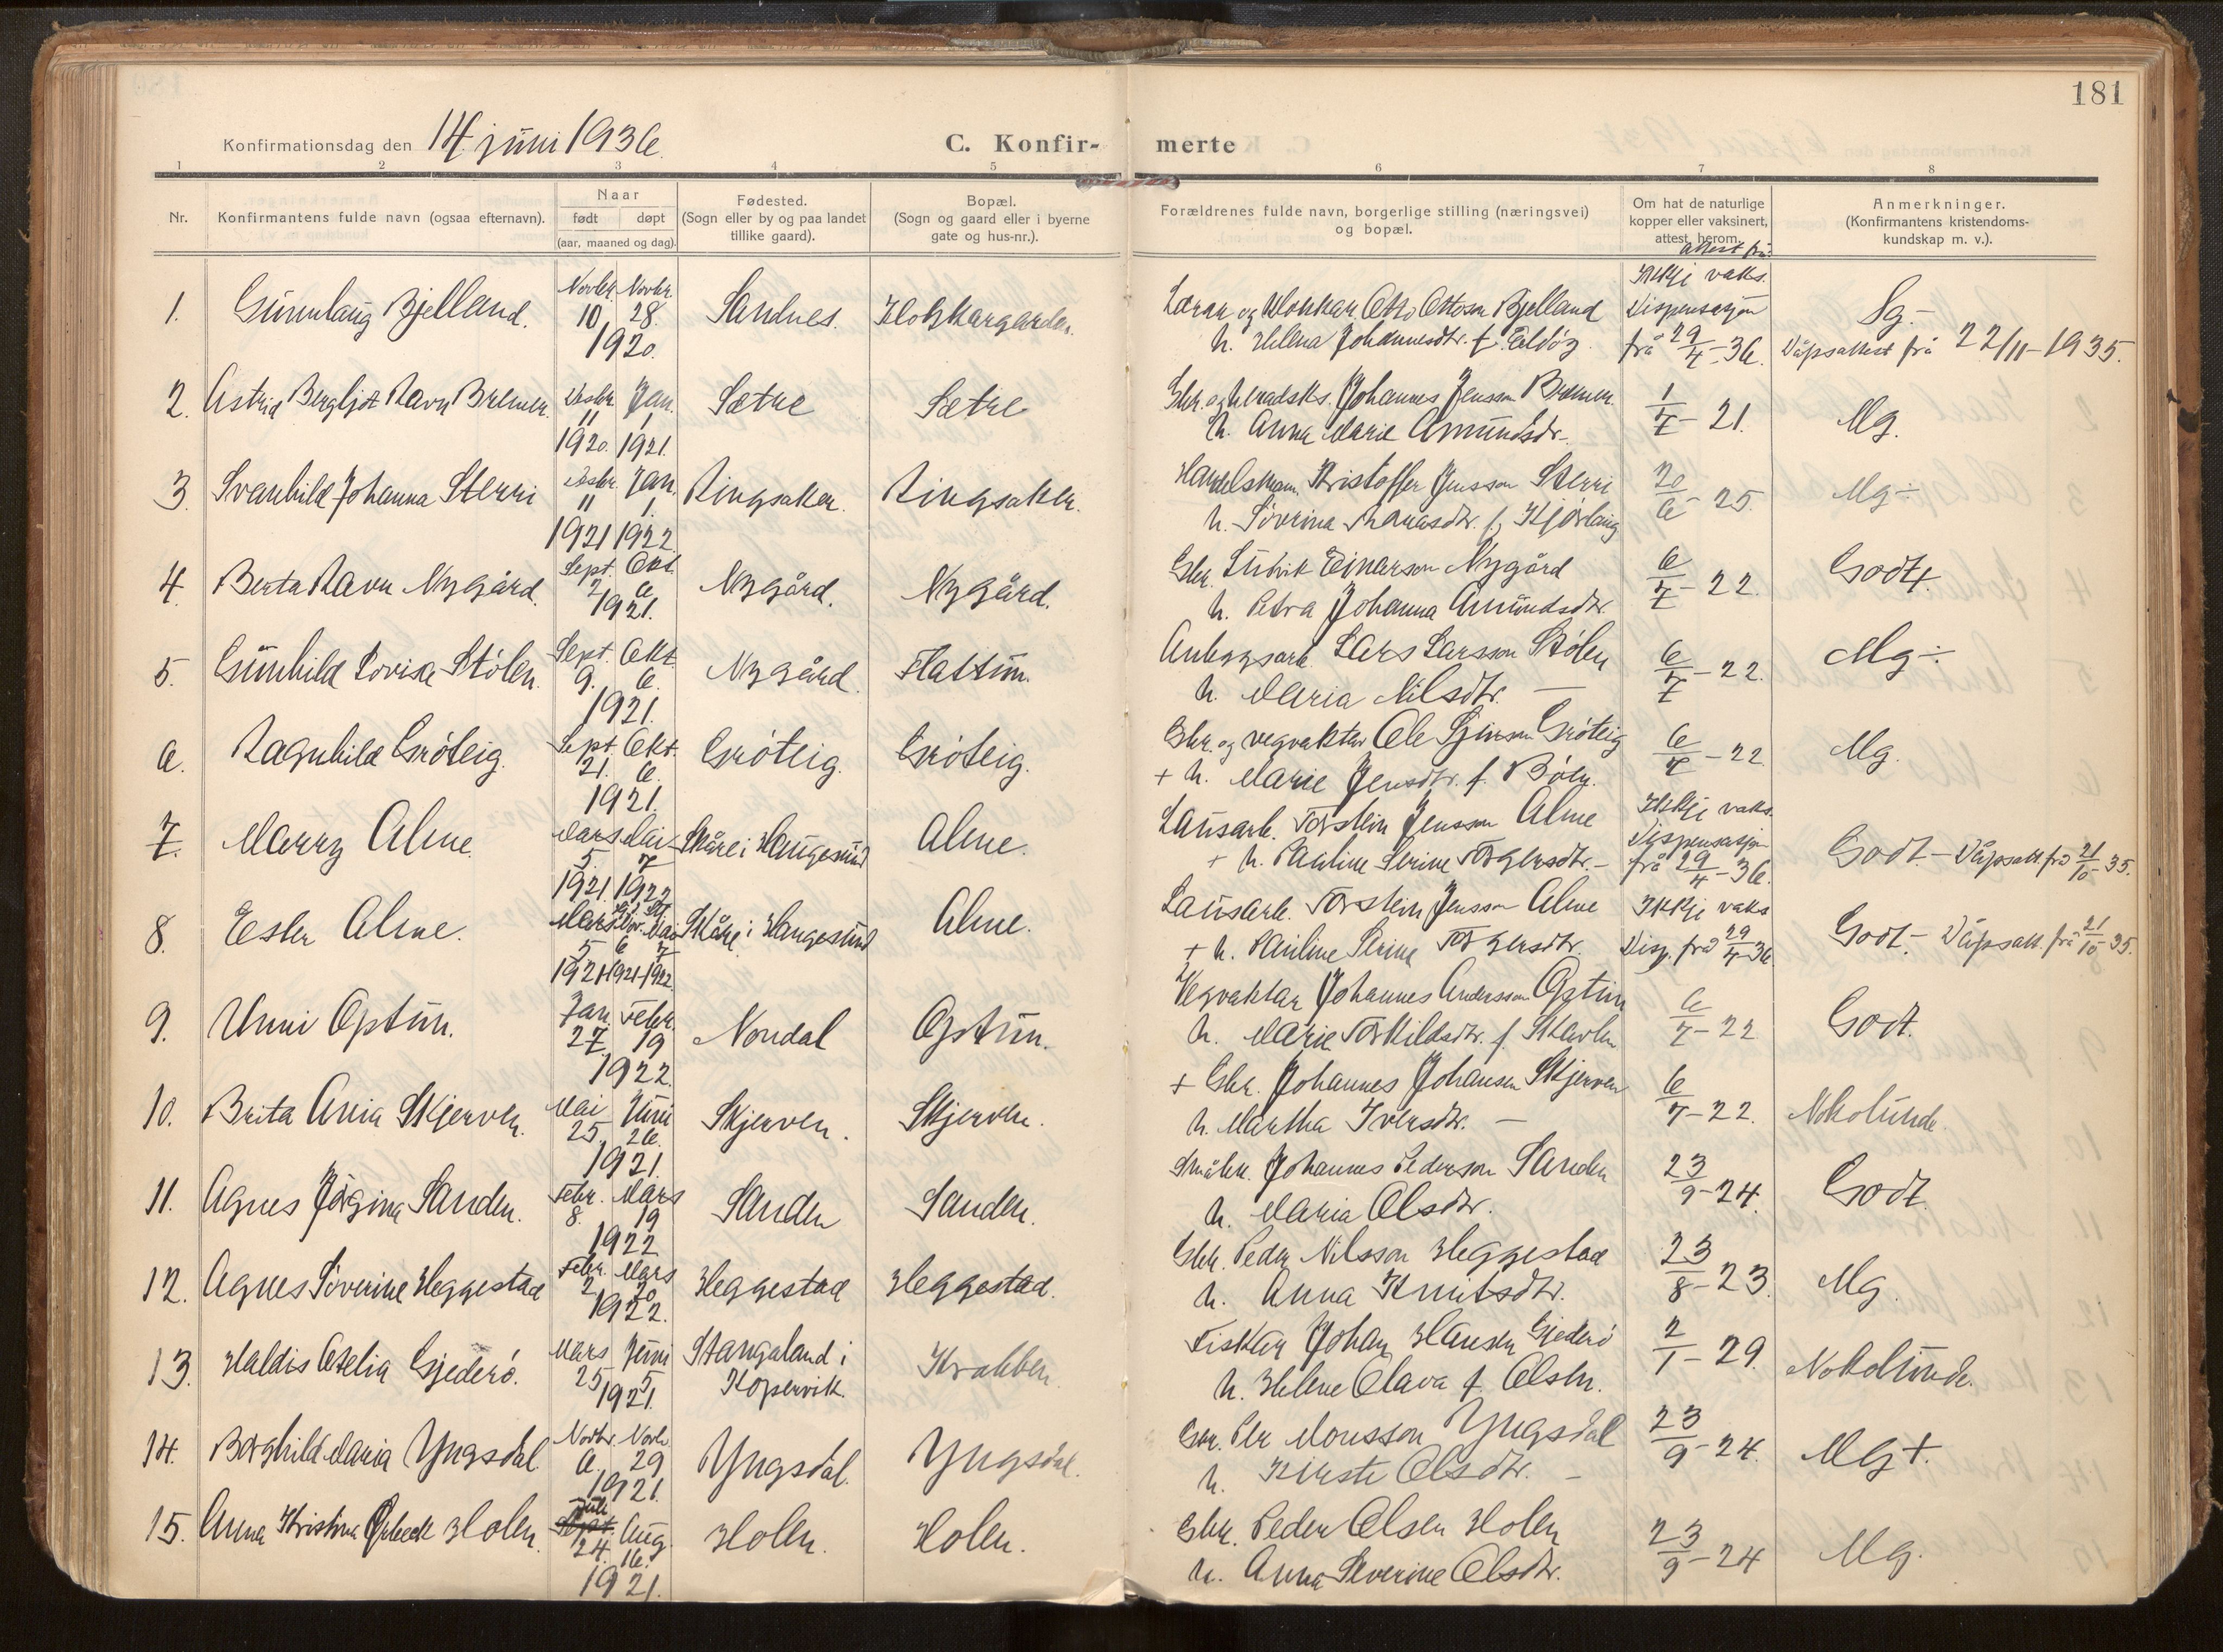 181
Konfirmationsdag den 14. juni 1936.
C. Konfir- merte
1 2 3 4 5 6 7 8
Nr.
Konfirmantens fulde navn (ogsaa efternavn).
Naar
født døpt
(aar, maaned og dag).
Fødested.
(Sogn eller by og paa landet
tillike gaard).
Bopæl.
(Sogn og gaard eller i byerne
gate og hus-nr.).
Forældrenes fulde navn, borgerlige stilling (næringsvei)
og bopæl.
Om hat de naturlige
kopper eller vaksinert,
attest herom.
attest frå
Anmerkninger.
(Konfirmantens kristendoms-
kundskap m. v.).
1. Gunnlaug Bjelland. Novbr. 10. Novbr. 28. 1920. Sandnes. Klokkargarden.
Lærar og klokkar Otto Ottoson Bjelland
h. Helena Johannesdtr. f. Eldöy
Ikkje vaks.
Dispensasjon
frå 29/4-36.
Sg.-
Dåpsattest frå 22/11-1935.
2. Astrid Bergljot Ravn Bremer. Desbr. 11 1920. Jan. 1 1921. Sætre Sætre
Gbr. og heradsks. Johannes Jensson Bremer.
h. Anna Marie Amundsdr.
1/7-21.
Mg.
3. Svanhild Johanna Sterri Desbr. 11 1921 Jan. 1. 1922. Ringsaker. Ringsaker.
Handelsmann. Kristoffer Jensson Sterri
h. Söverina f. Kjørlaug
20/6-25.
Mg ÷
4. Berta Ravn Nygård. Sept. 2 Okt. 6 1921. Nygård. Nygård.
Gbr. Ludvik Einarson Nygård
h. Petra Johanna Amundsdtr.
6/7-22.
Godt+
5. Gunhild Lovise Stölen. Sept. 9. Okt. 6. 1921. Nygård. Flattun.
Anleggsarb. Lars Larsson Stölen
h. Maria Nilsdtr. —
6/7-22.
Mg ÷
6. Ragnhild Gröteig. Sept. 21. Okt. 6. 1921. Gröteig. Gröteig.
Gbr. og vegvaktar Ole Gröteig
+ h. Marie Jensdtr. f.
6/7-22
Mg.
7. Marry Alme. Mars 5. 1921. Mai 7 1922 Skåre i Haugesund Alme.
Lausarb. Torstein Jensson Alme
+ h. Pauline Serine Torgersdtr. -
Ikkje vaks.
Dispensasjon
frå 29/4-36.
Godt - Dåpsatt. frå 21/10-35.
8. Esler Alme. Mars 5 1921 Nov. 6 1921 Mai 7 1922. Skåre i Haugesund Alme.
Lausarb. Torstein Jensson Alme
+ h. Pauline Serine Torgersdtr.
Ikkje vaks
Disp. frå 29/4-36
Godt - Dåpsatt. frå 21/10-35.
9. Unni Optun. Jan. 27 Febr. 19 1922. Nondal Optun.
Vegvaktar Johannes Andersson Optun
h. Marie Torkildsdtr. f.
6/7-22
Godt.
10. Brita Ania Skjerven. Mai 25. Juni 26. 1921. Skjerven. Skjerven.
+ Gbr. Johannes Johansen Skjerven
h. Martha Iversdtr. —
6/7-22.
Nokolunde.
11. Agnes Jørgina Sanden. Febr. 8. Mars 19 1922 Sanden Sanden.
Småbr. Johannes Pederson Sanden
h. Maria Olsdtr.
23/9-24.
Godt.
12. Agnes Söverine Heggestad Febr. 2 Mars 20 1922. Heggestad Heggestad.
Gbr. Peder Nilsson Heggestad
h. Anna Knutsdtr.
23/8-23.
Mg.
13. Haldis Otelia Gjederö. Mars 25 Juni 5 1921. Stangaland i
Kopervik. Krakken.
Fiskar Johan Hansen Gjederö
h. Helene Olava f. Olsen.
2/1-29.
Nokolunde.
14. Borghild Maria Yngsdal. Novbr. 6. Novbr. 29 1921. Yngsdal. Yngsdal.
Gbr. Per Monsson Yngsdal
h. Kirsti Olsdtr. -
23/9-24.
Mg+.
15. Anna Kristina Holen. Juli 24. Aug. 16. 1921. Holen. Holen.
Gbr. Peder Olsen Holen
h. Anna Severine Olsdtr.
23/9-24
Mg.